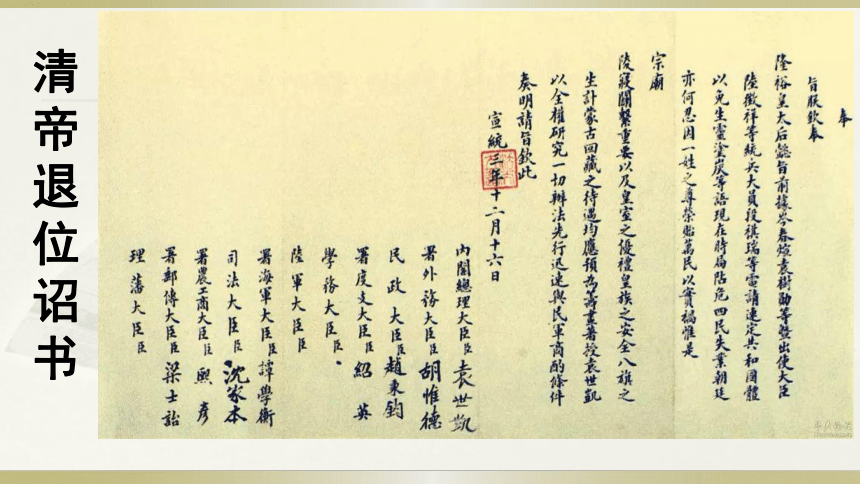 清帝退位诏书
奉
旨朕欽奉
隆裕皇太后懿旨前據岑春煊袁樹勛等暨出使大臣
陸徵祥等統兵大員段祺瑞等電請速定共和國體
以免生靈塗炭等語現在時局阽危四民失業朝廷
亦何忍因一姓之尊榮貽萬民以實禍惟是
宗廟
陵寢關繫重要以及皇室之優禮皇族之安全八旗之
生計蒙古回藏之待遇均應預為籌畫著授袁世凱
以全權研究一切辦法先行迅速與民軍商酌條件
奏明請旨欽此
宣統三年十二月十六日
內閣總理大臣臣袁世凱
署外務大臣臣胡惟德
民政大臣臣趙秉鈞
署度支大臣臣紹英
學務大臣臣
陸軍大臣臣
署海軍大臣臣譚學衡
司法大臣臣沈家本
署農工商大臣臣熙彥
署郵傳大臣臣梁士詒
理藩大臣臣